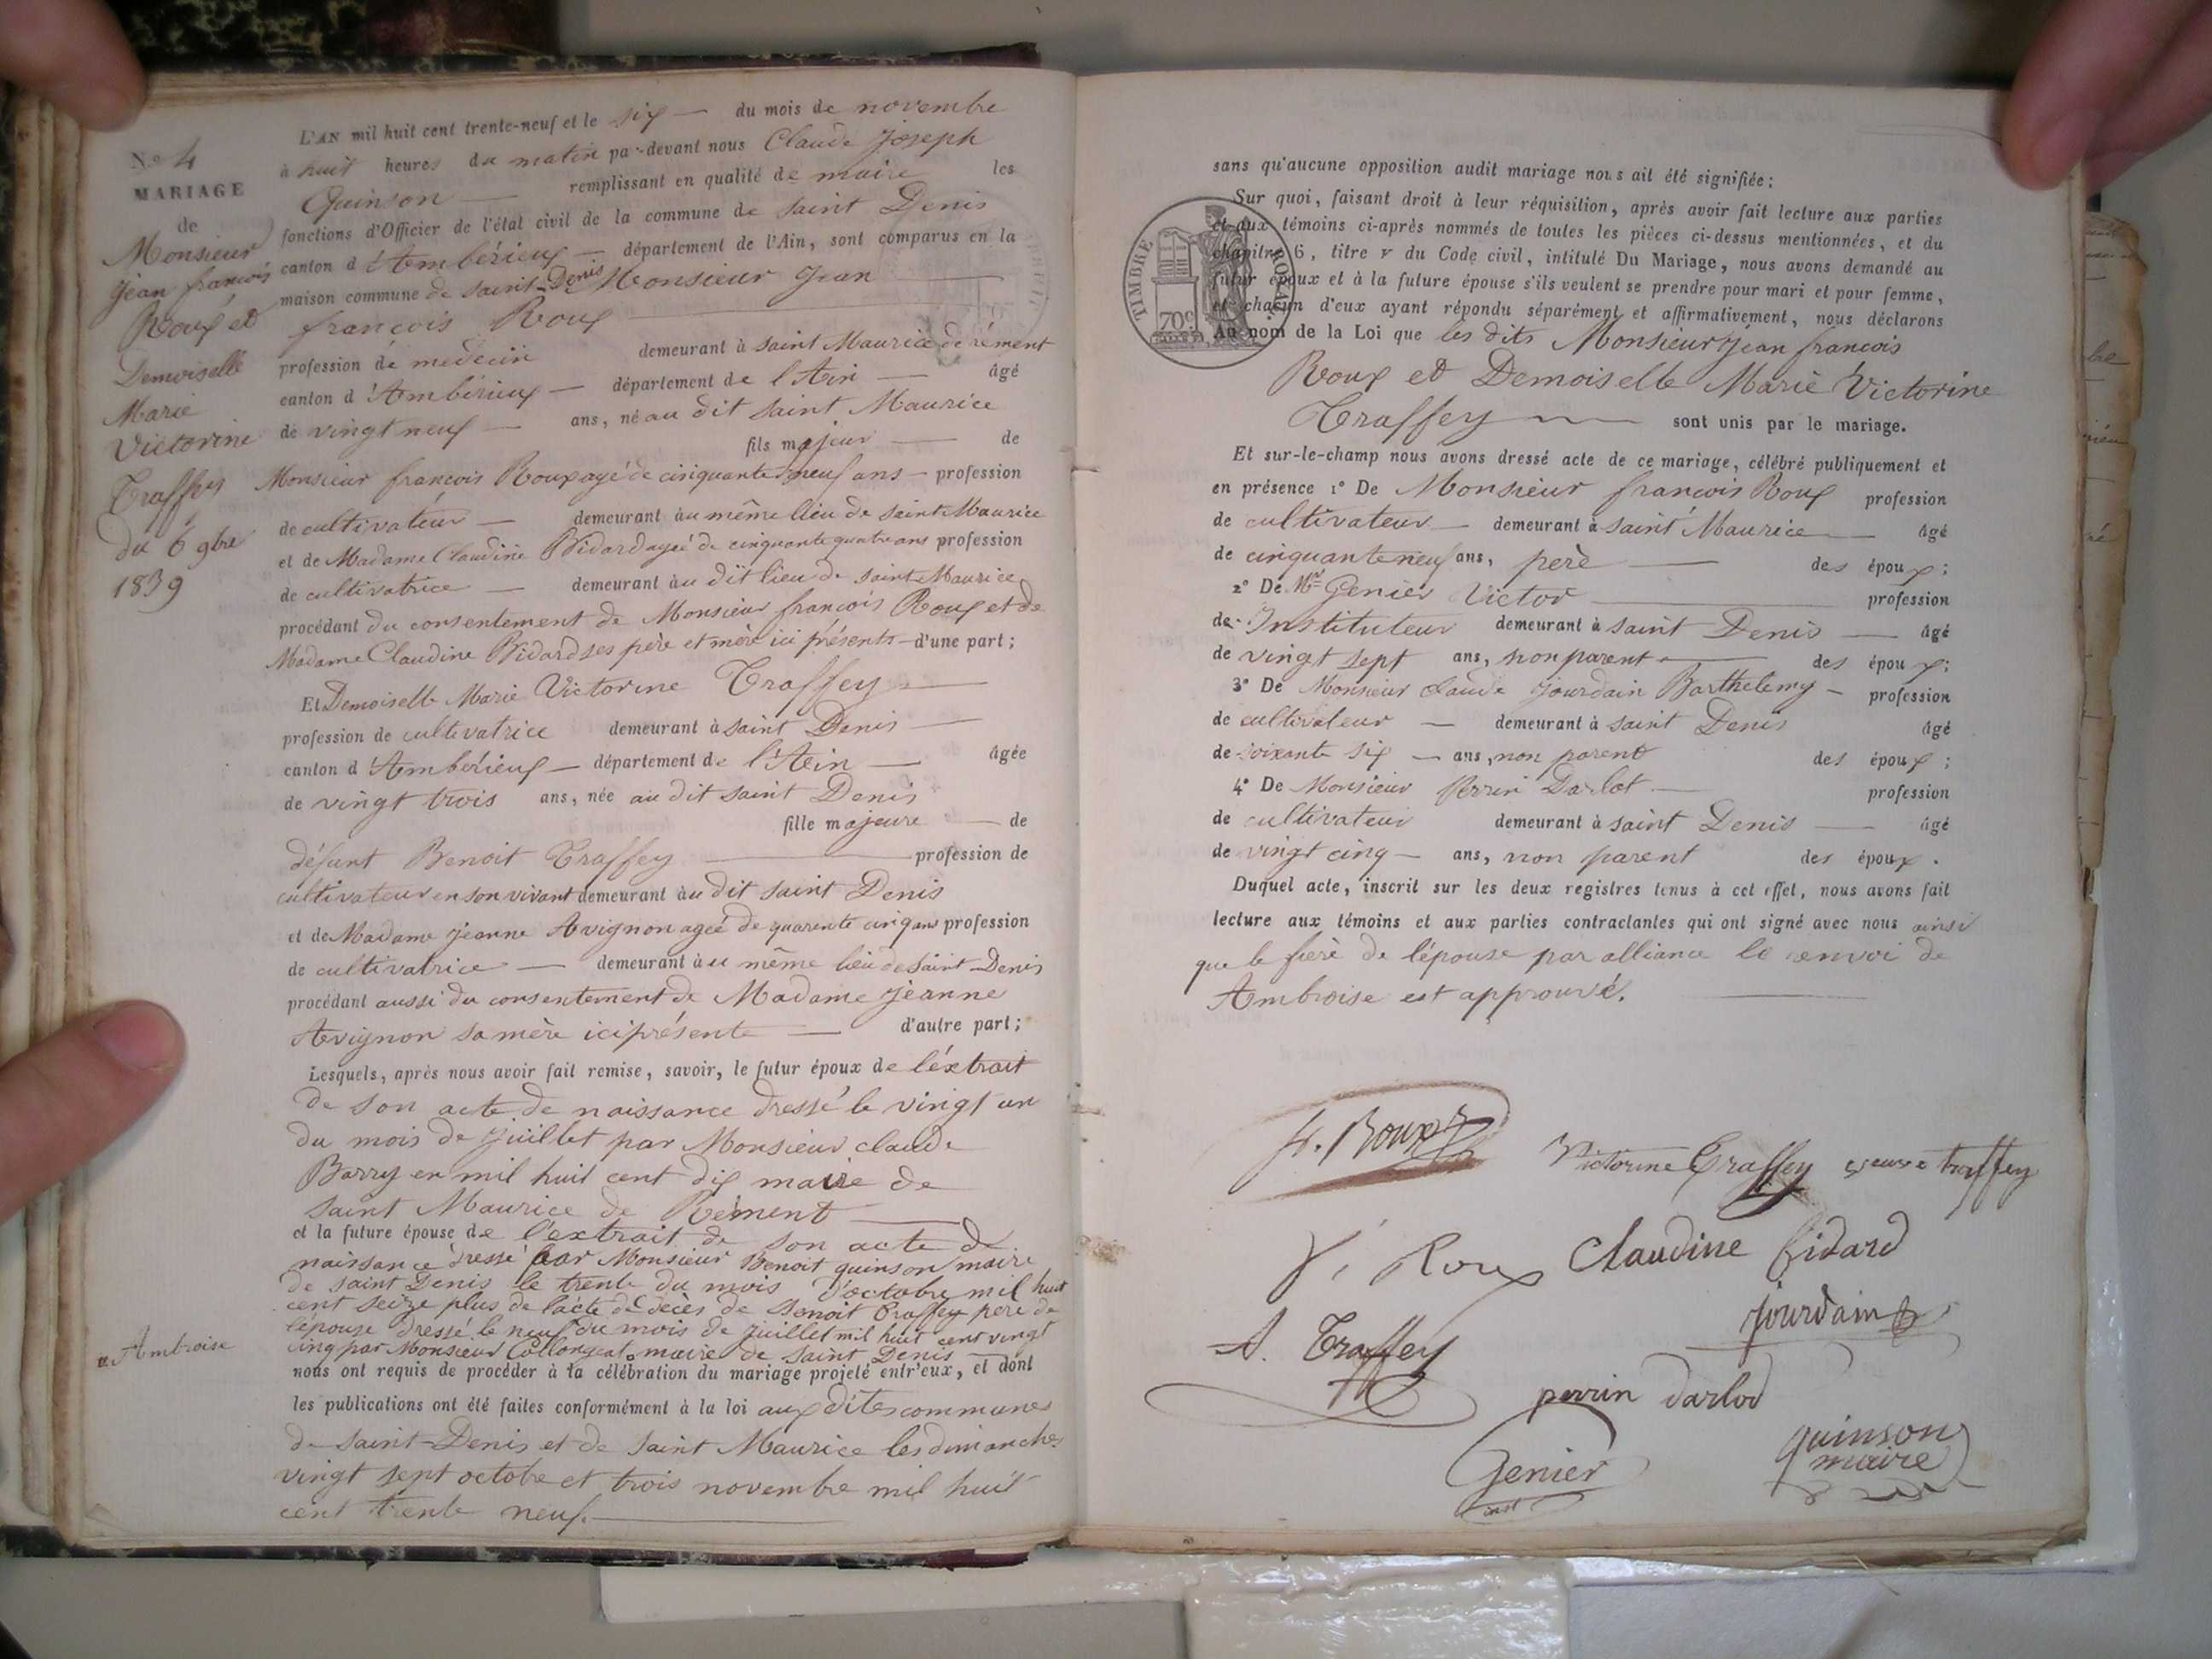 N.o 4
MARIAGE
de
Monsieur
jean francois
Roux et
Demoiselle
Marie
Victorine
Traffey
du 6 9bre
1839
L'AN mil huit cent trente-neuf et le six — du mois de novembre
à huit heures du matin par-devant nous Claude Joseph
Quinson — remplissant en qualité de maire les
fonctions d'Officier de l'état civil de la commune de saint Denis
canton d'Ambérieux — département de l'Ain, sont comparus en la
maison commune de saint-Denis Monsieur Jean —
françois Roux —
profession de medecin demeurant à saint Maurice de rément
canton d'Ambérieux — département de l'Ain — âgé
de vingt neuf — ans, né au dit saint Maurice
fils majeur — de
Monsieur françois Roux agé de cinquante neuf ans — profession
de cultivateur — demeurant au même lieu de saint Maurice
et de Madame Claudine Bidard agée de cinquante quatre ans profession
de cultivatrice — demeurant au dit lieu de saint Maurice
procédant du consentement de Monsieur françois Roux et de
Madame Claudine Bidard ses père et mère ici présents — d'une part;
Et Demoiselle Marie Victorine Traffey —
profession de cultivatrice demeurant à saint Denis —
canton d'Ambérieux — département de l'Ain — âgée
de vingt trois ans, née au dit saint Denis
fille majeure — de
défunt Benoit Traffey — profession de
cultivateur en son vivant demeurant au dit saint Denis
et de Madame jeanne Avignon agée de quarente cinq ans profession
de cultivatrice — demeurant au même lieu de saint-Denis
procédant aussi du consentement de Madame jeanne
Avignon sa mère ici présente — d'autre part;
Lesquels, après nous avoir fait remise, savoir, le futur époux de l'éxtrait
de son acte de naissance dressé le vingt un
du mois de juillet par Monsieur claude
Barry en mil huit cent dix maire de
saint Maurice de Rement —
et la future épouse de l'extrait de son acte de
naissance dressé par Monsieur Benoit quinson maire
de saint Denis le trente du mois d'octobre mil huit
cent seize plus de l'acte de décès de Benoit Traffey père de
l'épouse dressé le neuf du mois de juillet mil huit cent vingt
cinq par Monsieur maire de saint Denis —
Ambroise
nous ont requis de procéder à la célébration du mariage projeté entr'eux, et dont
les publications ont été faites conformément à la loi aux dites communes
de saint-Denis et de saint Maurice les dimanches
vingt sept octobre et trois novembre mil huit
cent trente neuf. —
sans qu'aucune opposition audit mariage nous ait été signifiée;
Sur quoi, faisant droit à leur réquisition, après avoir fait lecture aux parties
et aux témoins ci-après nommés de toutes les pièces ci-dessus mentionnées, et du
chapitre 6, titre v du Code civil, intitulé Du Mariage, nous avons demandé au
futur époux et à la future épouse s'ils veulent se prendre pour mari et pour femme,
et chacun d'eux ayant répondu séparément et affirmativement, nous déclarons
Au nom de la Loi que les dits Monsieur jean francois
TIMBRE ROYAL
70c
Roux et Demoiselle Marie Victorine
Traffey — sont unis par le mariage.
Et sur-le-champ nous avons dressé acte de ce mariage, célébré publiquement et
en présence 1° De Monsieur françois Roux profession
de cultivateur — demeurant à saint Maurice — âgé
de cinquante neuf ans, père — des époux;
2° De Mr Genier Victor — profession
de Instituteur demeurant à saint Denis — âgé
de vingt sept ans, non parent — des époux;
3° De Monsieur claude jourdain Barthelemy — profession
de cultivateur — demeurant à saint Denis âgé
de soixante six — ans, non parent des époux;
4° De Monsieur Perrin Darlot — profession
de cultivateur demeurant à saint Denis — âgé
de vingt cinq — ans, non parent des époux.
Duquel acte, inscrit sur les deux registres tenus à cet effet, nous avons fait
lecture aux témoins et aux parties contractantes qui ont signé avec nous ainsi
que le frère de l'épouse par alliance le renvoi de
Ambroise est approuvé. —
f. Roux
Victorine Traffey veuve traffey
f. Roux Claudine bidard
jourdain
A. Traffey
perrin darlod
Genier
inst
quinson
maire